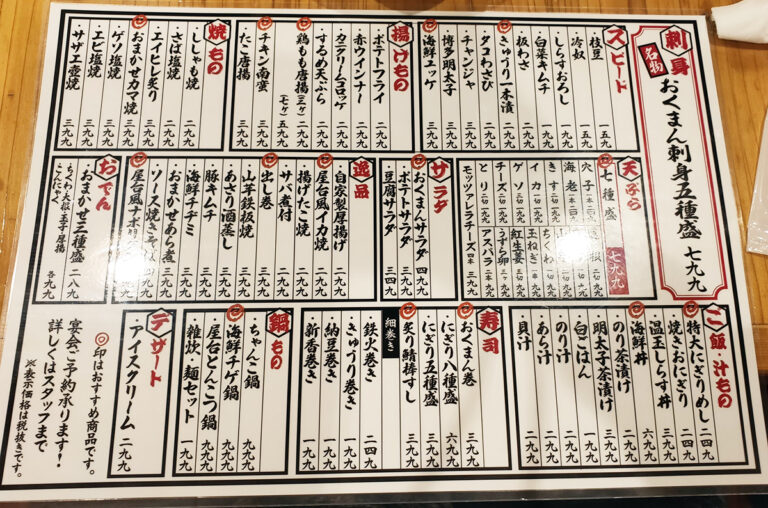 刺身
名物
おくまん刺身五種盛 七九九
スピード
・枝豆 一五九
・冷奴 一五九
・しらすおろし 一九九
・白菜キムチ 一九九
・板わさ 一九九
・きゅうり一本漬 二九九
・タコわさび 二九九
・チャンジャ 二九九
・博多明太子 三九九
・海鮮ユッケ 三九九
揚げもの
・ポテトフライ 二九九
・赤ウインナー 二九九
・カニクリームコロッケ 二九九
・するめ天ぷら 二九九
・鶏もも唐揚(三ヶ) 二九九
(七ヶ) 五九九
・チキン南蛮 三九九
・たこ唐揚 三九九
焼もの
・ししゃも焼 二九九
・さば塩焼 二九九
・ゲソ塩焼 二九九
・おまかせカマ焼 三九九
・エイヒレ炙り 三九九
・エビ塩焼 三九九
・サザエ壺焼 三九九
天ぷら
七種盛 七九九
穴子
海老
きす
イカ
ゲソ
チーズ
とり
モッツァレラチーズ
ちくわ
玉ねぎ
紅生姜
うずら卵
アスパラ
サラダ
・おくまんサラダ 四九九
・ポテトサラダ 二九九
・豆腐サラダ 三四九
逸品
・自家製厚揚げ 二九九
・屋台風イカ焼 二九九
・揚げたこ焼 二九九
・サバ煮付 二九九
・出し巻 二九九
・山芋鉄板焼 二九九
・あさり酒蒸し 三九九
・豚キムチ 三九九
・海鮮チヂミ 三九九
・おまかせあら煮 三九九
・ソース焼きそば
・屋台風ナポリ
おでん
おまかせ三種盛 二八九
ちくわ・大根・玉子・厚揚
こんにゃく 各九九
ご飯・汁もの
・特大にぎりめし 二四九
・焼きおにぎり 二四九
・温玉しらす丼 三九九
・海鮮丼 六九九
・のり茶漬け 二九九
・明太子茶漬け 三九九
・白ごはん 一九九
・のり汁 二九九
・あら汁 二九九
・貝汁 二九九
寿司
・おくまん巻 三九九
・にぎり八種盛 六九九
・にぎり五種盛 三九九
・炙り鯖棒すし 三九九
細巻き
・鉄火巻き 二四九
・きゅうり巻き 一九九
・納豆巻き 一九九
・新香巻き 一九九
鍋もの
・ちゃんこ鍋 九九九
・海鮮チゲ鍋 九九九
・屋台とんこつ鍋 九九九
・雑炊・麺セット 一九九
デザート
・アイスクリーム 二九九
◎印はおすすめ商品です。
宴会ご予約承ります!
詳しくはスタッフまで
※表示価格は税抜きです。